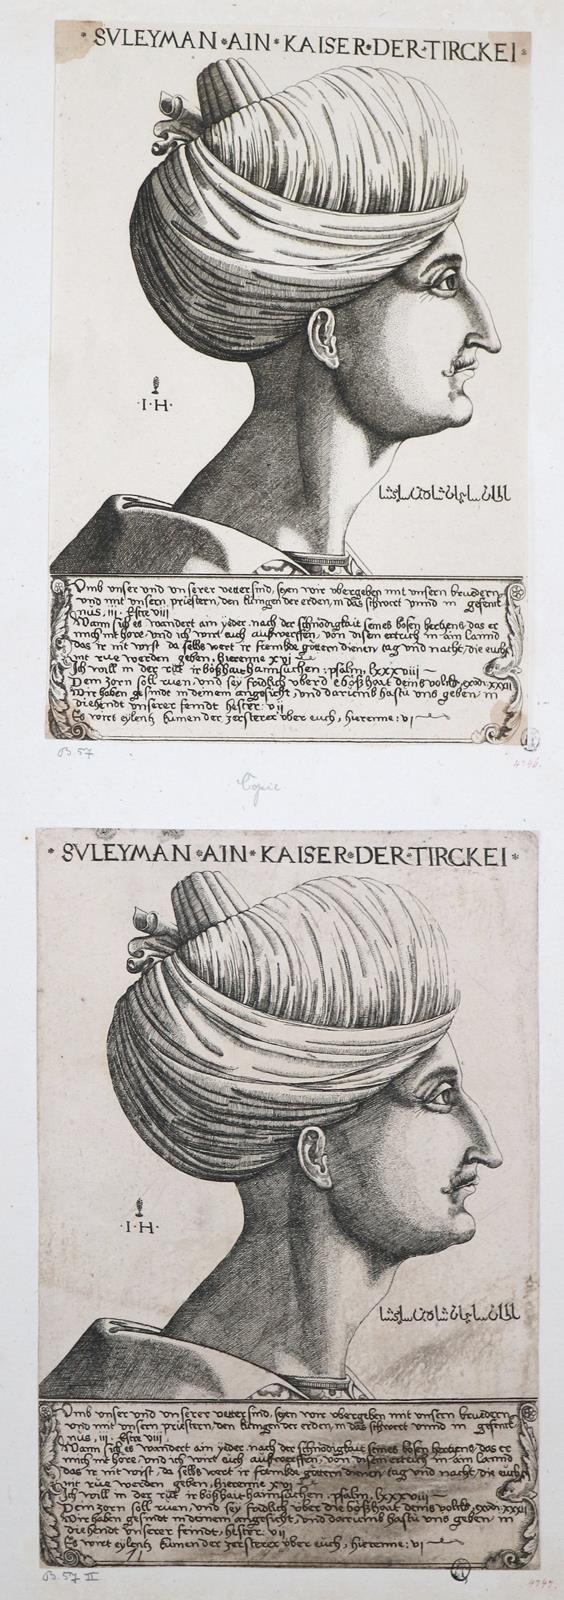 * SVLEYMAN * AIN * KAISER * DER * TIRCKEI *
· I · H ·
Vmb vnser vnd vnserer vetter sind, seyen wir vbergeben mit vnsern bruedern
vnd mit vnsern priestern, den kungen der erden, in das schwert vnnd in gefenk
nus, iii. Esre viii
Wann sich es wandert ain yeder nach der schnödigkait seines bosen hertzens, das er
mich nit höre vnd ich wirt euch außwerffen, von disem ertrich in am lannd
das ir nit wist, da selbs wert ir frembden göttern dienen, tag vnd nacht, die euch
nit rue werden geben, hieremie xvi
Ich will in der rüt ir boßhait haimsuchen, psalm, lxxxviii
Dein zorn soll ruen, vnd sey fridlich vber die boßhait deins volcks, exodi xxxii
Wir haben gesindt in deinem angesicht, vnd darumb hastu vns geben, in
die hendt vnserer feindt, hester, vii
Es wirt eylentz kumen der zersterer vber euch, hieremie: vi
B. 57
4246.
Copie
* SVLEYMAN * AIN * KAISER * DER * TIRCKEI *
· I · H ·
Vmb vnser vnd vnserer vetter sind, seyen wir vbergeben mit vnsern bruedern
vnd mit vnsern priestern, den kungen der erden, in das schwert vnnd in gefenk
nus, iii. Esre viii
Wann sich es wandert ain yeder nach der schnödigkait seines bosen hertzens, das er
mich nit höre vnd ich wirt euch außwerffen, von disem ertrich in am lannd
das ir nit wist, da selbs wert ir frembden göttern dienen, tag vnd nacht, die euch
nit rue werden geben, hieremie xvi
Ich will in der rüt ir boßhait haimsuchen, psalm, lxxxviii
Dein zorn soll ruen, vnd sey fridlich vber die boßhait deins volcks, exodi xxxii
Wir haben gesindt in deinem angesicht, vnd darumb hastu vns geben, in
die hendt vnserer feindt, hester, vii
Es wirt eylentz kumen der zersterer vber euch, hieremie: vi
B. 57 II
4247.